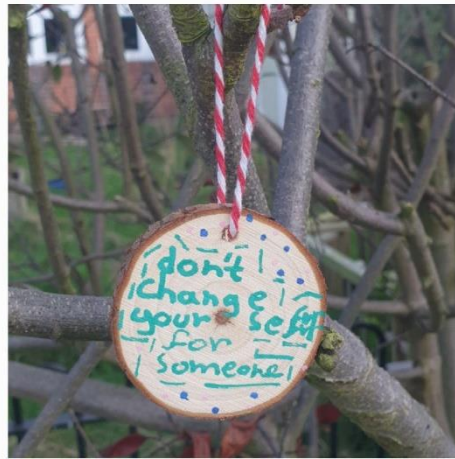 don't
change
your self
for
someone